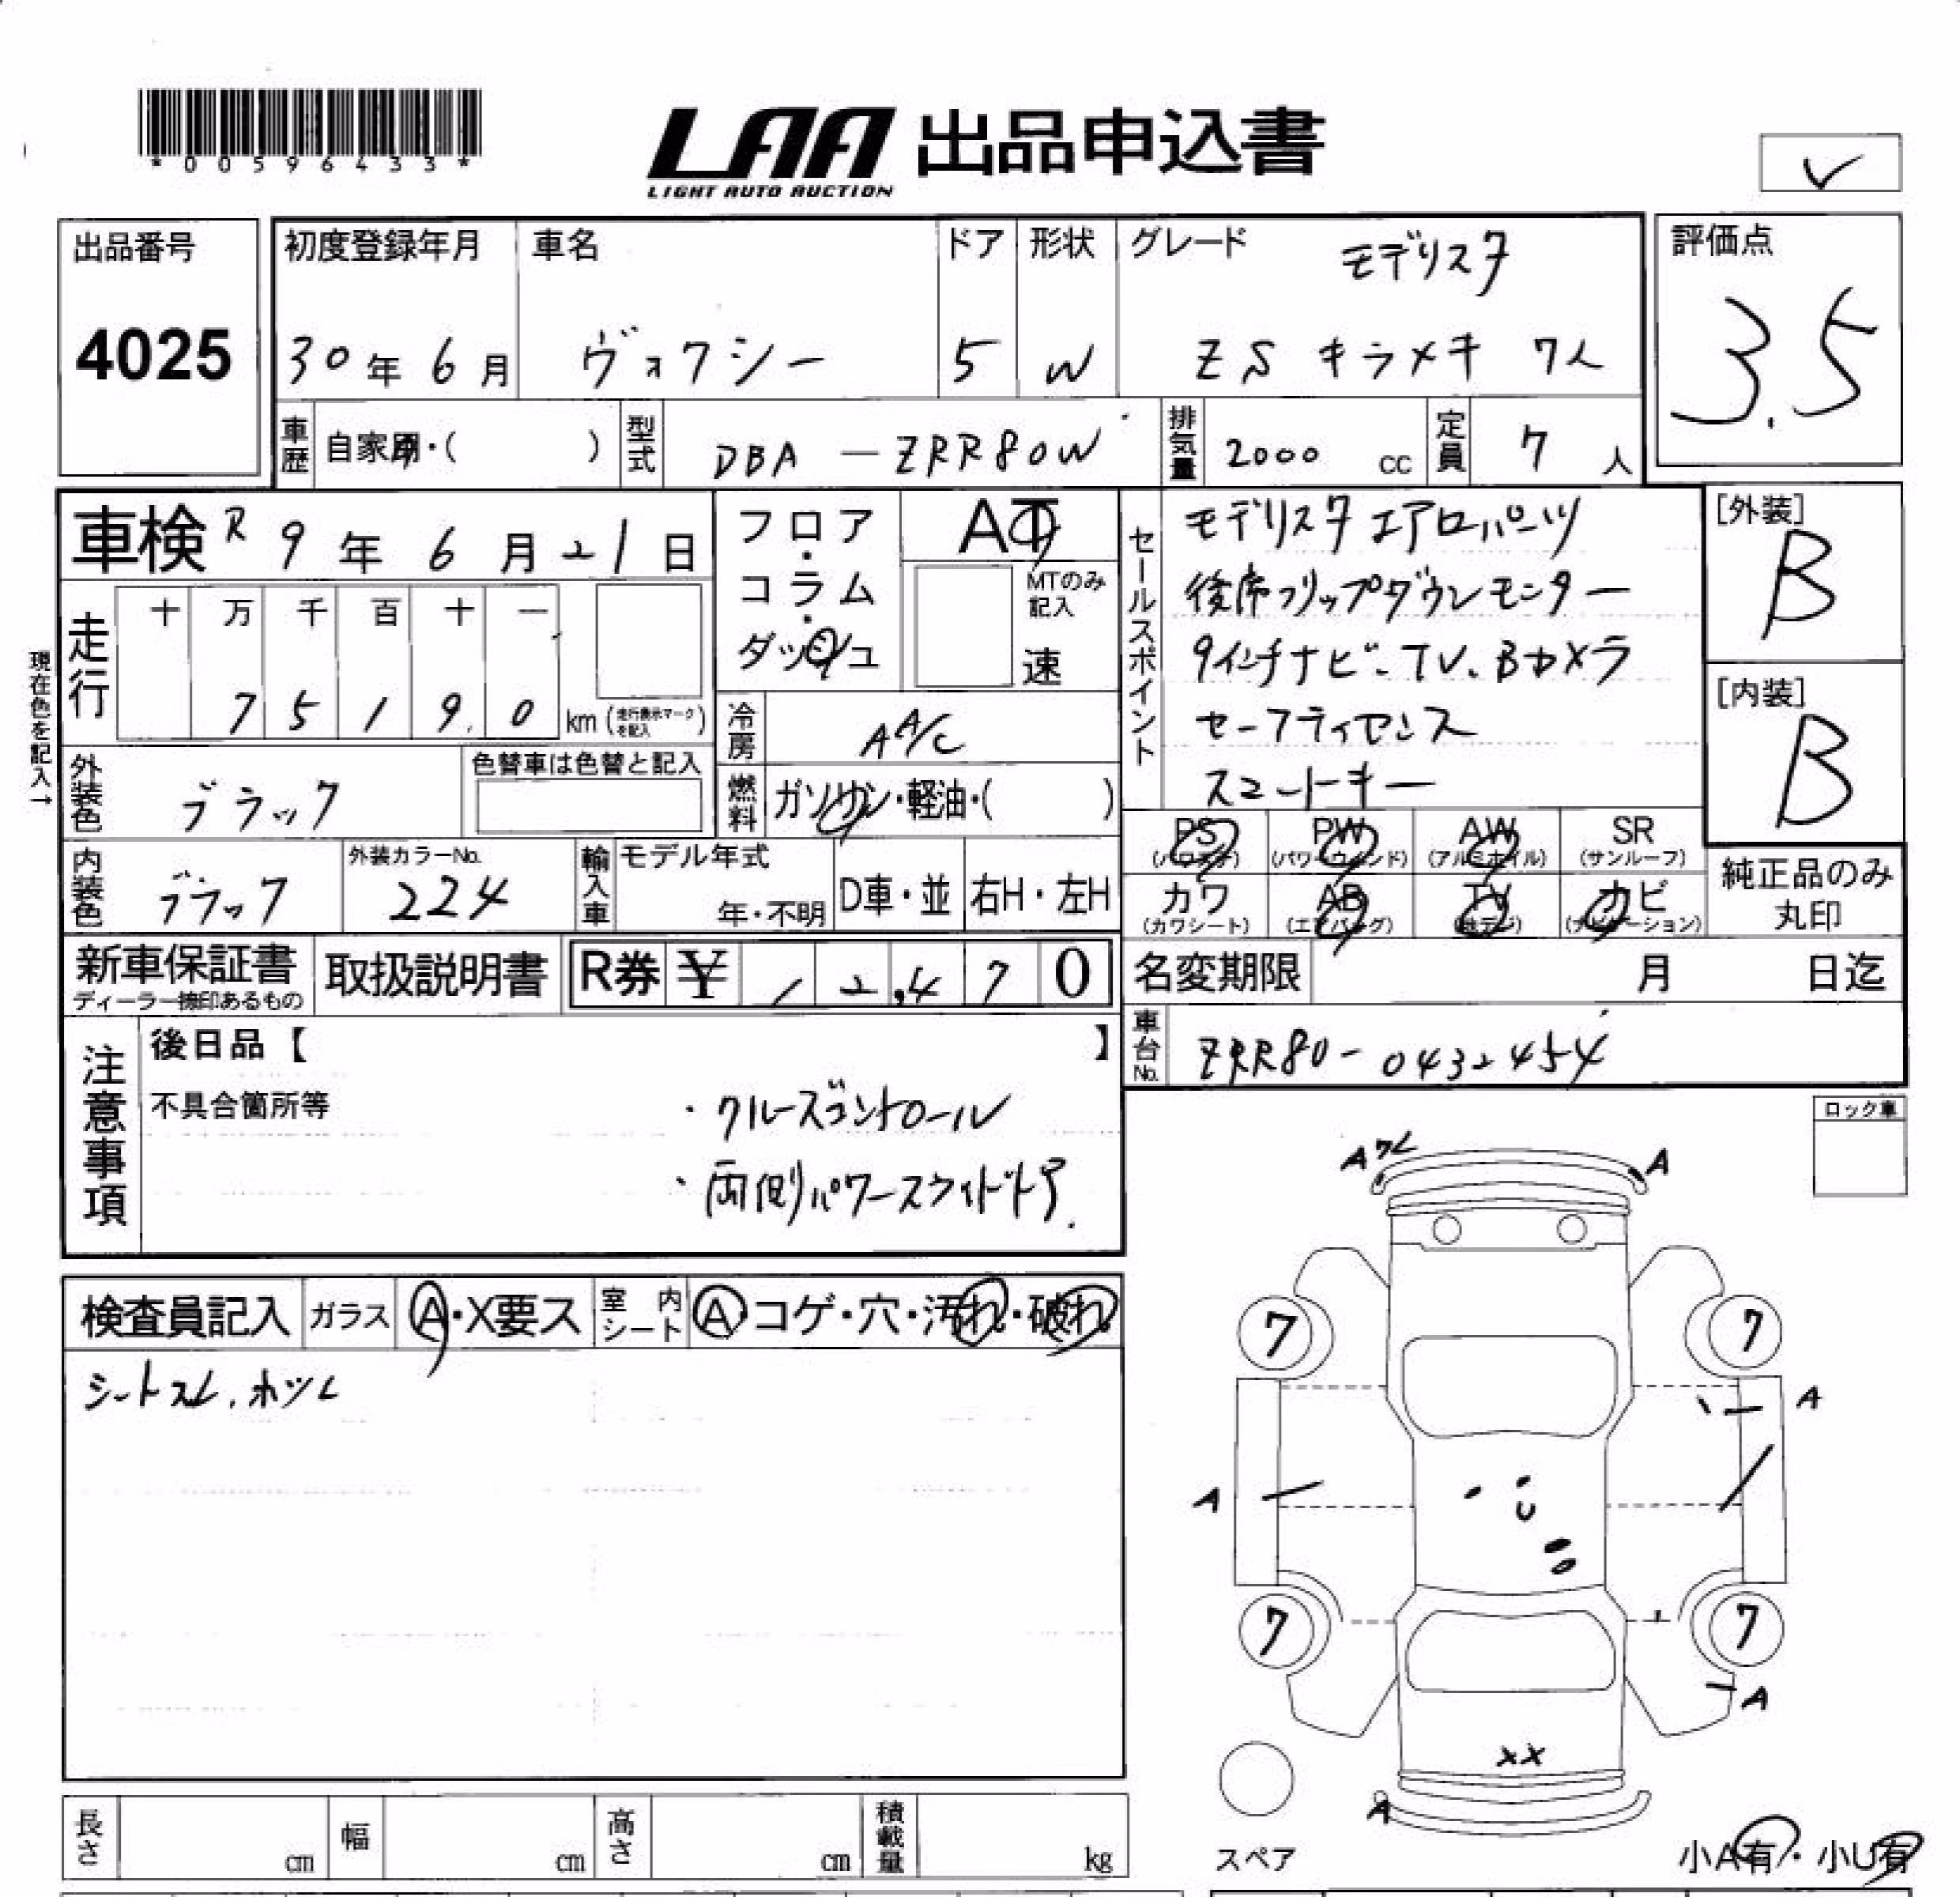 *00596433*
LAA 出品申込書
LIGHT AUTO AUCTION
出品番号
4025
初度登録年月
30年6月
車名
ヴォクシー
ドア
5
形状
W
グレード
モデリスタ
ZS キラメキ 7人
評価点
3.5
車歴
自家用・( )
型式
DBA-ZRR80W
排気量
2000 cc
定員
7 人
車検 R 9年 6月 21日
フロア・コラム・ダッシュ
AT
MTのみ記入
速
現在色を記入→
走行
十 万 千 百 十 一
7 5 1 9 0 km (走行表示マークを記入)
冷房
AA/C
外装色
ブラック
色替車は色替と記入
燃料
ガソリン・軽油・( )
内装色
ブラック
外装カラーNo.
224
輸入車
モデル年式
年・不明
D車・並
右H・左H
セールスポイント
モデリスタエアロパーツ
後席フリップダウンモニター
9インチナビ.TV.Bカメラ
セーフティセンス
スマートキー
[外装]
B
[内装]
B
PS
(パワステ)
PW
(パワーウィンド)
AW
(アルミホイル)
SR
(サンルーフ)
カワ
(カワシート)
AB
(エアバッグ)
TV
(地デジ)
ナビ
(ナビゲーション)
純正品のみ
丸印
新車保証書
ディーラー捺印あるもの
取扱説明書
R券 ¥ 12,470
名変期限 月 日迄
車台No.
ZRR80-0432454
注意事項
後日品【 】
不具合箇所等
・クルーズコントロール
・両側パワースライドドア.
ロック車
検査員記入
ガラス
A・X要ス
室内シート
A・コゲ・穴・汚れ・破れ
シートスレ.ホツレ
Aワレ
A
7
7
A
A
U
7
7
A
XX
A
スペア
小A有・小U有
長さ cm
幅 cm
高さ cm
積載量 kg